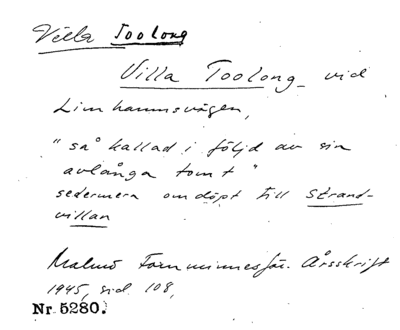 Villa Toolong
Villa Toolong vid
Limhamnsvägen,
"så kallad i följd av sin
avlånga tomt"
sedermera omdöpt till Strand-
villan
Malmö Fornminnesför. Årsskrift
1945, sid. 108,
Nr 5280.